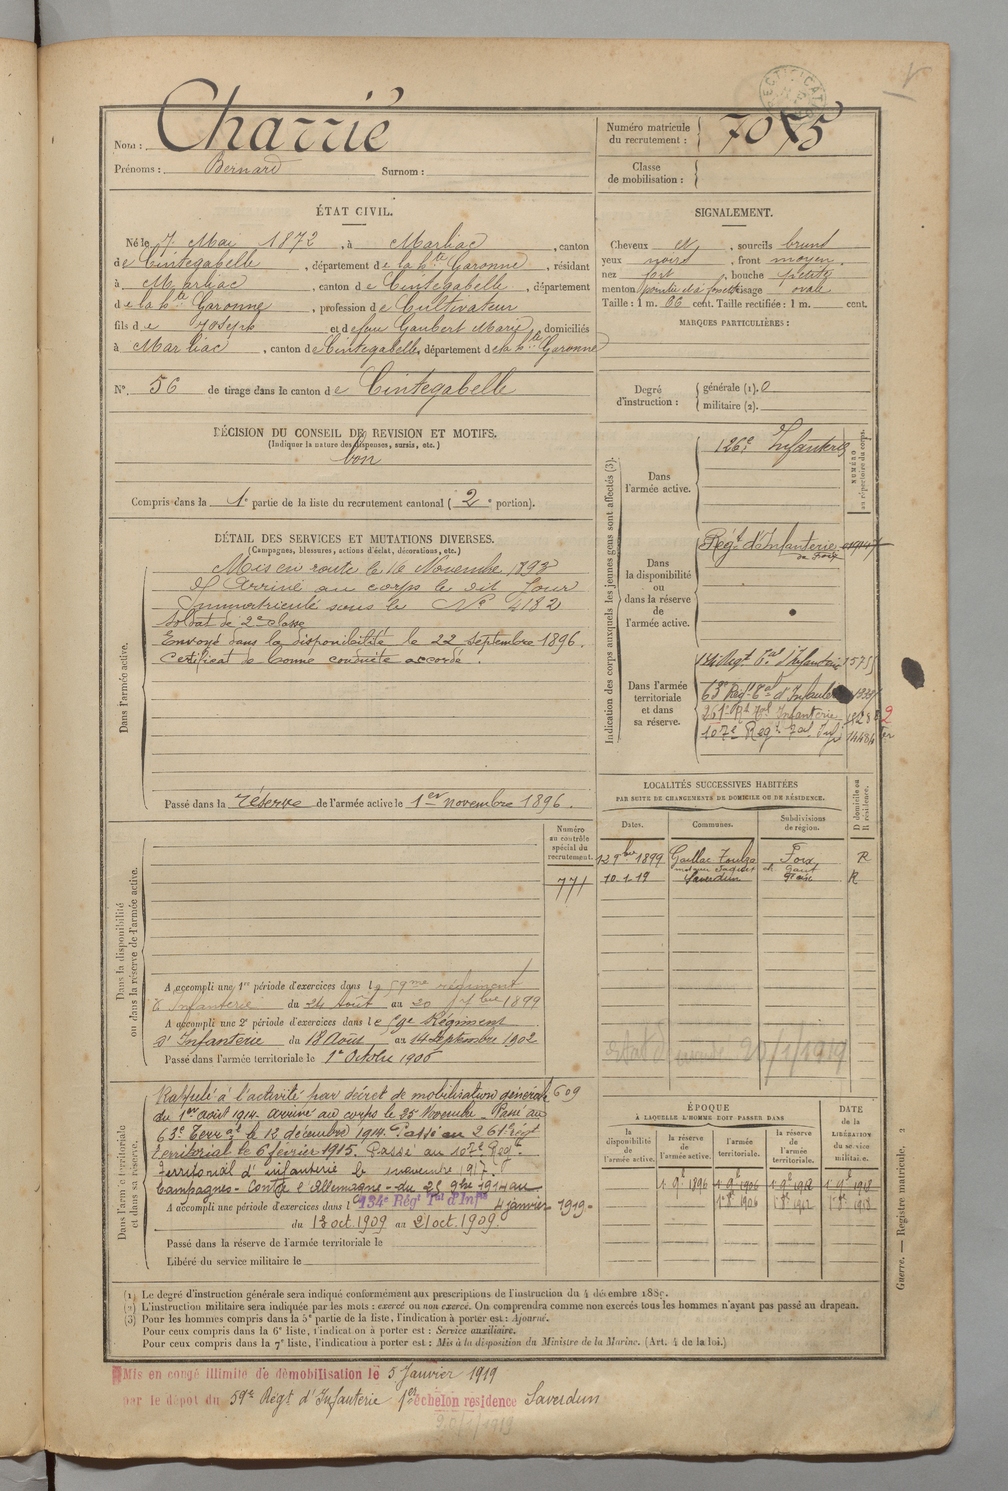 Nom : Charrié
Prénoms : Bernard Surnom :
Numéro matricule du recrutement : 7075
Classe de mobilisation :
ÉTAT CIVIL.
Né le 7 Mai 1872, à Marliac, canton
de Cintegabelle, département de la hte Garonne, résidant
à Marliac, canton de Cintegabelle, département
de la hte Garonne, profession de Cultivateur
fils de Joseph et de feu Gaubert Marie, domiciliés
à Marliac, canton de Cintegabelle, département de la hte Garonne
N° 56 de tirage dans le canton de Cintegabelle
SIGNALEMENT.
Cheveux et, sourcils bruns
yeux noirs, front moyen.
nez fort, bouche petite
menton pointu et à fossette visage ovale
Taille : 1 m. 66 cent. Taille rectifiée : 1 m. cent.
MARQUES PARTICULIÈRES :
Degré d'instruction : générale (1). 0
militaire (2).
DÉCISION DU CONSEIL DE REVISION ET MOTIFS.
(Indiquer la nature des dispenses, sursis, etc.)
bon
Compris dans la 1e partie de la liste du recrutement cantonal (2e portion).
DÉTAIL DES SERVICES ET MUTATIONS DIVERSES.
(Campagnes, blessures, actions d'éclat, décorations, etc.)
Dans l'armée active.
Mis en route le 16 Novembre 1893
Arrivé au corps le dit Jour
Immatriculé sous le N° 4182
Soldat de 2e classe
Envoyé dans la disponibilité le 22 septembre 1896.
Certificat de bonne conduite accordé.
Passé dans la réserve de l'armée active le 1er novembre 1896.
Indication des corps auxquels les jeunes gens sont affectés (3).
NUMÉRO au répertoire du corps.
Dans l'armée active.
126e Infanterie
Dans la disponibilité ou dans la réserve de l'armée active.
Régt d'Infanterie
de Foix
Dans l'armée territoriale et dans sa réserve.
134 Regt Tal d'Infanterie
63e Regt Tal d'Infanterie
261e Rt Tal Infanterie
107e Regt Tal Inf
LOCALITÉS SUCCESSIVES HABITÉES
PAR SUITE DE CHANGEMENTS DE DOMICILE OU DE RÉSIDENCE.
Dates. Communes. Subdivisions de région. D domicile ou R résidence.
12 9bre 1899 Gaillac Toulza Foix R
10-1-19 Saverdun Foix R
Dans la disponibilité ou dans la réserve de l'armée active.
Numéro au contrôle spécial du recrutement.
771
A accompli une 1re période d'exercices dans le 59me régiment
d'Infanterie du 24 Août au 20 7bre 1899
A accompli une 2e période d'exercices dans le 59e Régiment
d'Infanterie du 18 Août au 14 Septembre 1902
Passé dans l'armée territoriale le 1er Octobre 1906
20/1/1919
Dans l'armée territoriale et dans sa réserve.
Rappelé à l'activité par décret de mobilisation générale 609
du 1er août 1914. arrivé au corps le 25 Novembre. Passé au
63e Terral le 12 décembre 1914. Passé au 261e régt
territorial le 6 février 1915. Passé au 107e Regt
territorial d'infanterie le novembre 1917.
Campagnes - Contre l'Allemagne - du 25 9bre 1914 au
4 janvier 1919.
A accompli une période d'exercices dans le 134e Régt Tal d'Inf
du 13 oct. 1909 au 21 oct. 1909.
Passé dans la réserve de l'armée territoriale le
Libéré du service militaire le
ÉPOQUE
À LAQUELLE L'HOMME DOIT PASSER DANS
la disponibilité de l'armée active. la réserve de l'armée active. l'armée territoriale. la réserve de l'armée territoriale.
DATE de la LIBÉRATION du service militaire.
1 9e 1896 1 9e 1906 1 9e 1912 1 9e 1918
1er 8e 1906 1er 8e 1912 1er 8e 1918
(1) Le degré d'instruction générale sera indiqué conformément aux prescriptions de l'instruction du 4 décembre 1889.
(2) L'instruction militaire sera indiquée par les mots : exercé ou non exercé. On comprendra comme non exercés tous les hommes n'ayant pas passé au drapeau.
(3) Pour les hommes compris dans la 5e partie de la liste, l'indication à porter est : Ajourné.
Pour ceux compris dans la 6e liste, l'indication à porter est : Service auxiliaire.
Pour ceux compris dans la 7e liste, l'indication à porter est : Mis à la disposition du Ministre de la Marine. (Art. 4 de la loi.)
Guerre. — Registre matricule. 2
Mis en congé illimité de démobilisation le 5 Janvier 1919
par le dépôt du 59e Régt d'Infanterie 1er échelon residence Saverdun